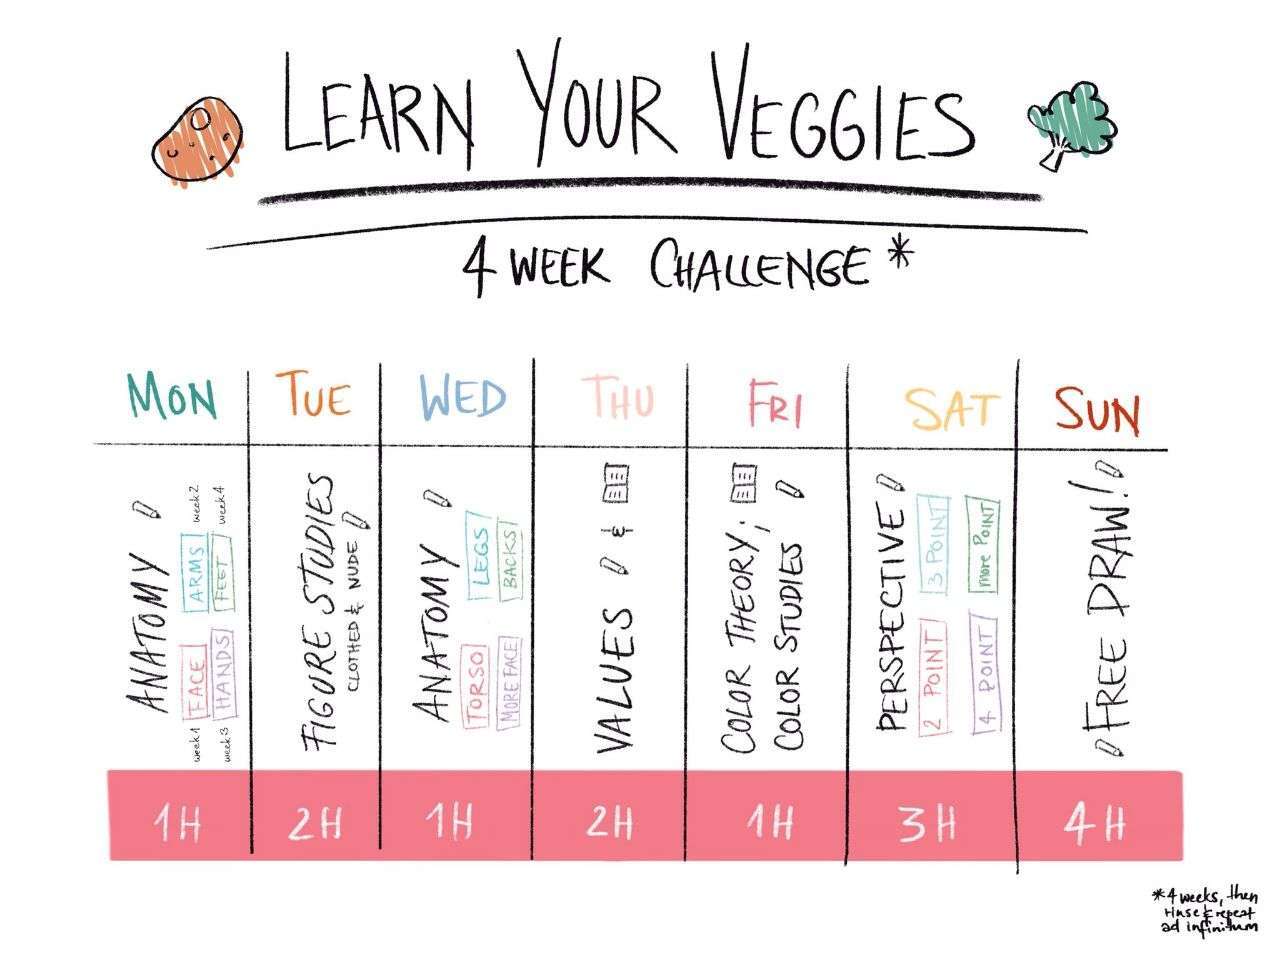 LEARN YOUR VEGGIES
4 WEEK CHALLENGE*
MON
TUE
WED
THU
FRI
SAT
SUN
ANATOMY
week1 FACE ARMS week2
week3 HANDS FEET week4
FIGURE STUDIES
CLOTHED & NUDE
ANATOMY
TORSO LEGS
MORE FACE BACKS
VALUES &
COLOR THEORY;
COLOR STUDIES
PERSPECTIVE
2 POINT 3 POINT
4 POINT more POINT
FREE DRAW!
1H
2H
1H
2H
1H
3H
4H
*4 weeks, then
rinse & repeat
ad infinitum